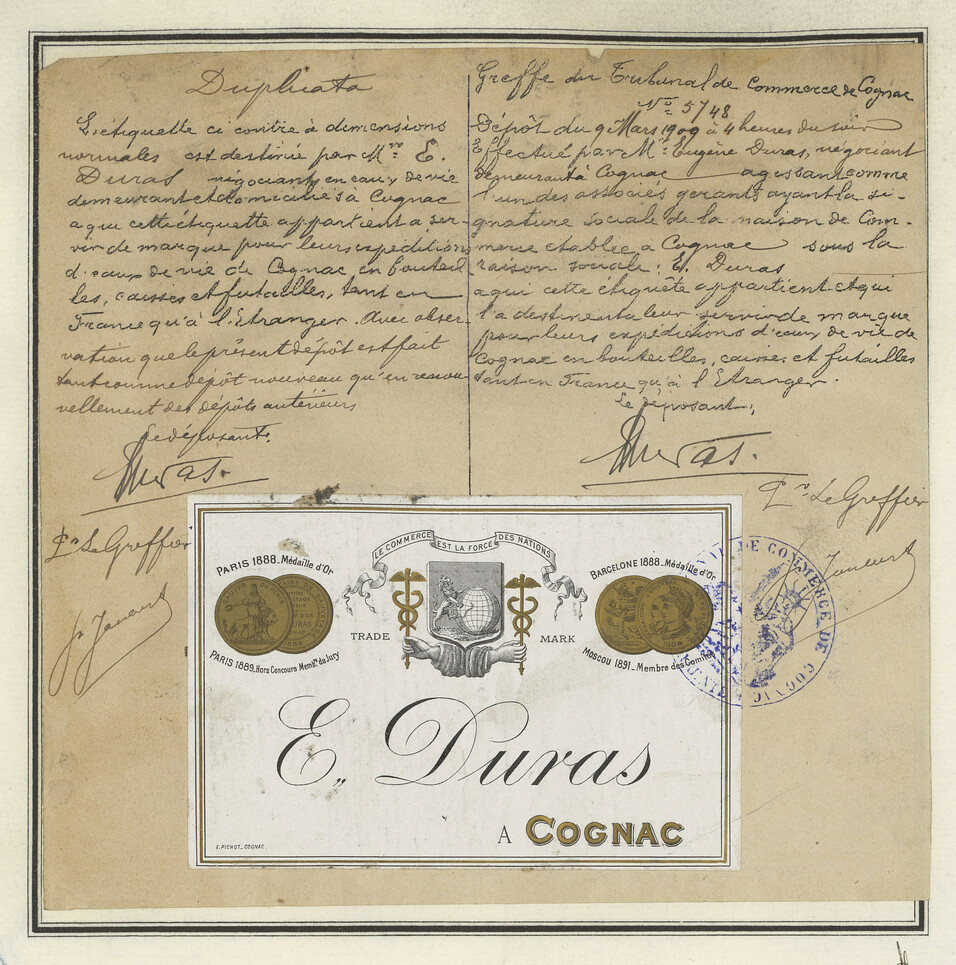 Duplicata
L'étiquette ci contre à dimensions
normales est destinée par Mr E.
Duras négociant en eaux de vie
demeurant et domicilié à Cognac
a qui cette étiquette appartient a ser-
vir de marque pour leurs expéditions
d'eaux de vie de Cognac, en bouteil
les, caisses et futailles, tant en
France qu'à l'Etranger. Avec obser-
vation que le présent dépôt est fait
tant comme dépôt nouveau qu'en renou-
vellement des dépôts antérieurs
Le déposant.
Duras.
Pr Le Greffier
Greffe du Tribunal de Commerce de Cognac
No 5748
Dépôt du 9 Mars 1909 à 4 heures du soir
Effectué par Mr Eugène Duras, négociant
demeurant à Cognac agissant comme
l'un des associés gérants ayant la si-
gnature sociale de la maison de Com-
merce etablie à Cognac sous la
raison sociale: E. Duras
a qui cette étiquête appartient et qui
l'a destinent a leur servir de marque
pour leurs expéditions d'eaux de vie de
Cognac en bouteilles, caisses et futailles
tant en France qu'à l'Etranger.
Le déposant,
Duras.
Pr Le Greffier
LE COMMERCE EST LA FORCE DES NATIONS
PARIS 1888_Médaille d'Or
PARIS 1889_Hors Concours Membre du Jury
TRADE MARK
BARCELONE 1888_Médaille d'Or
MOSCOU 1891_Membre des Comités
E. Duras
A COGNAC
E. PICHOT_COGNAC.
DE COMMERCE DE COGNAC